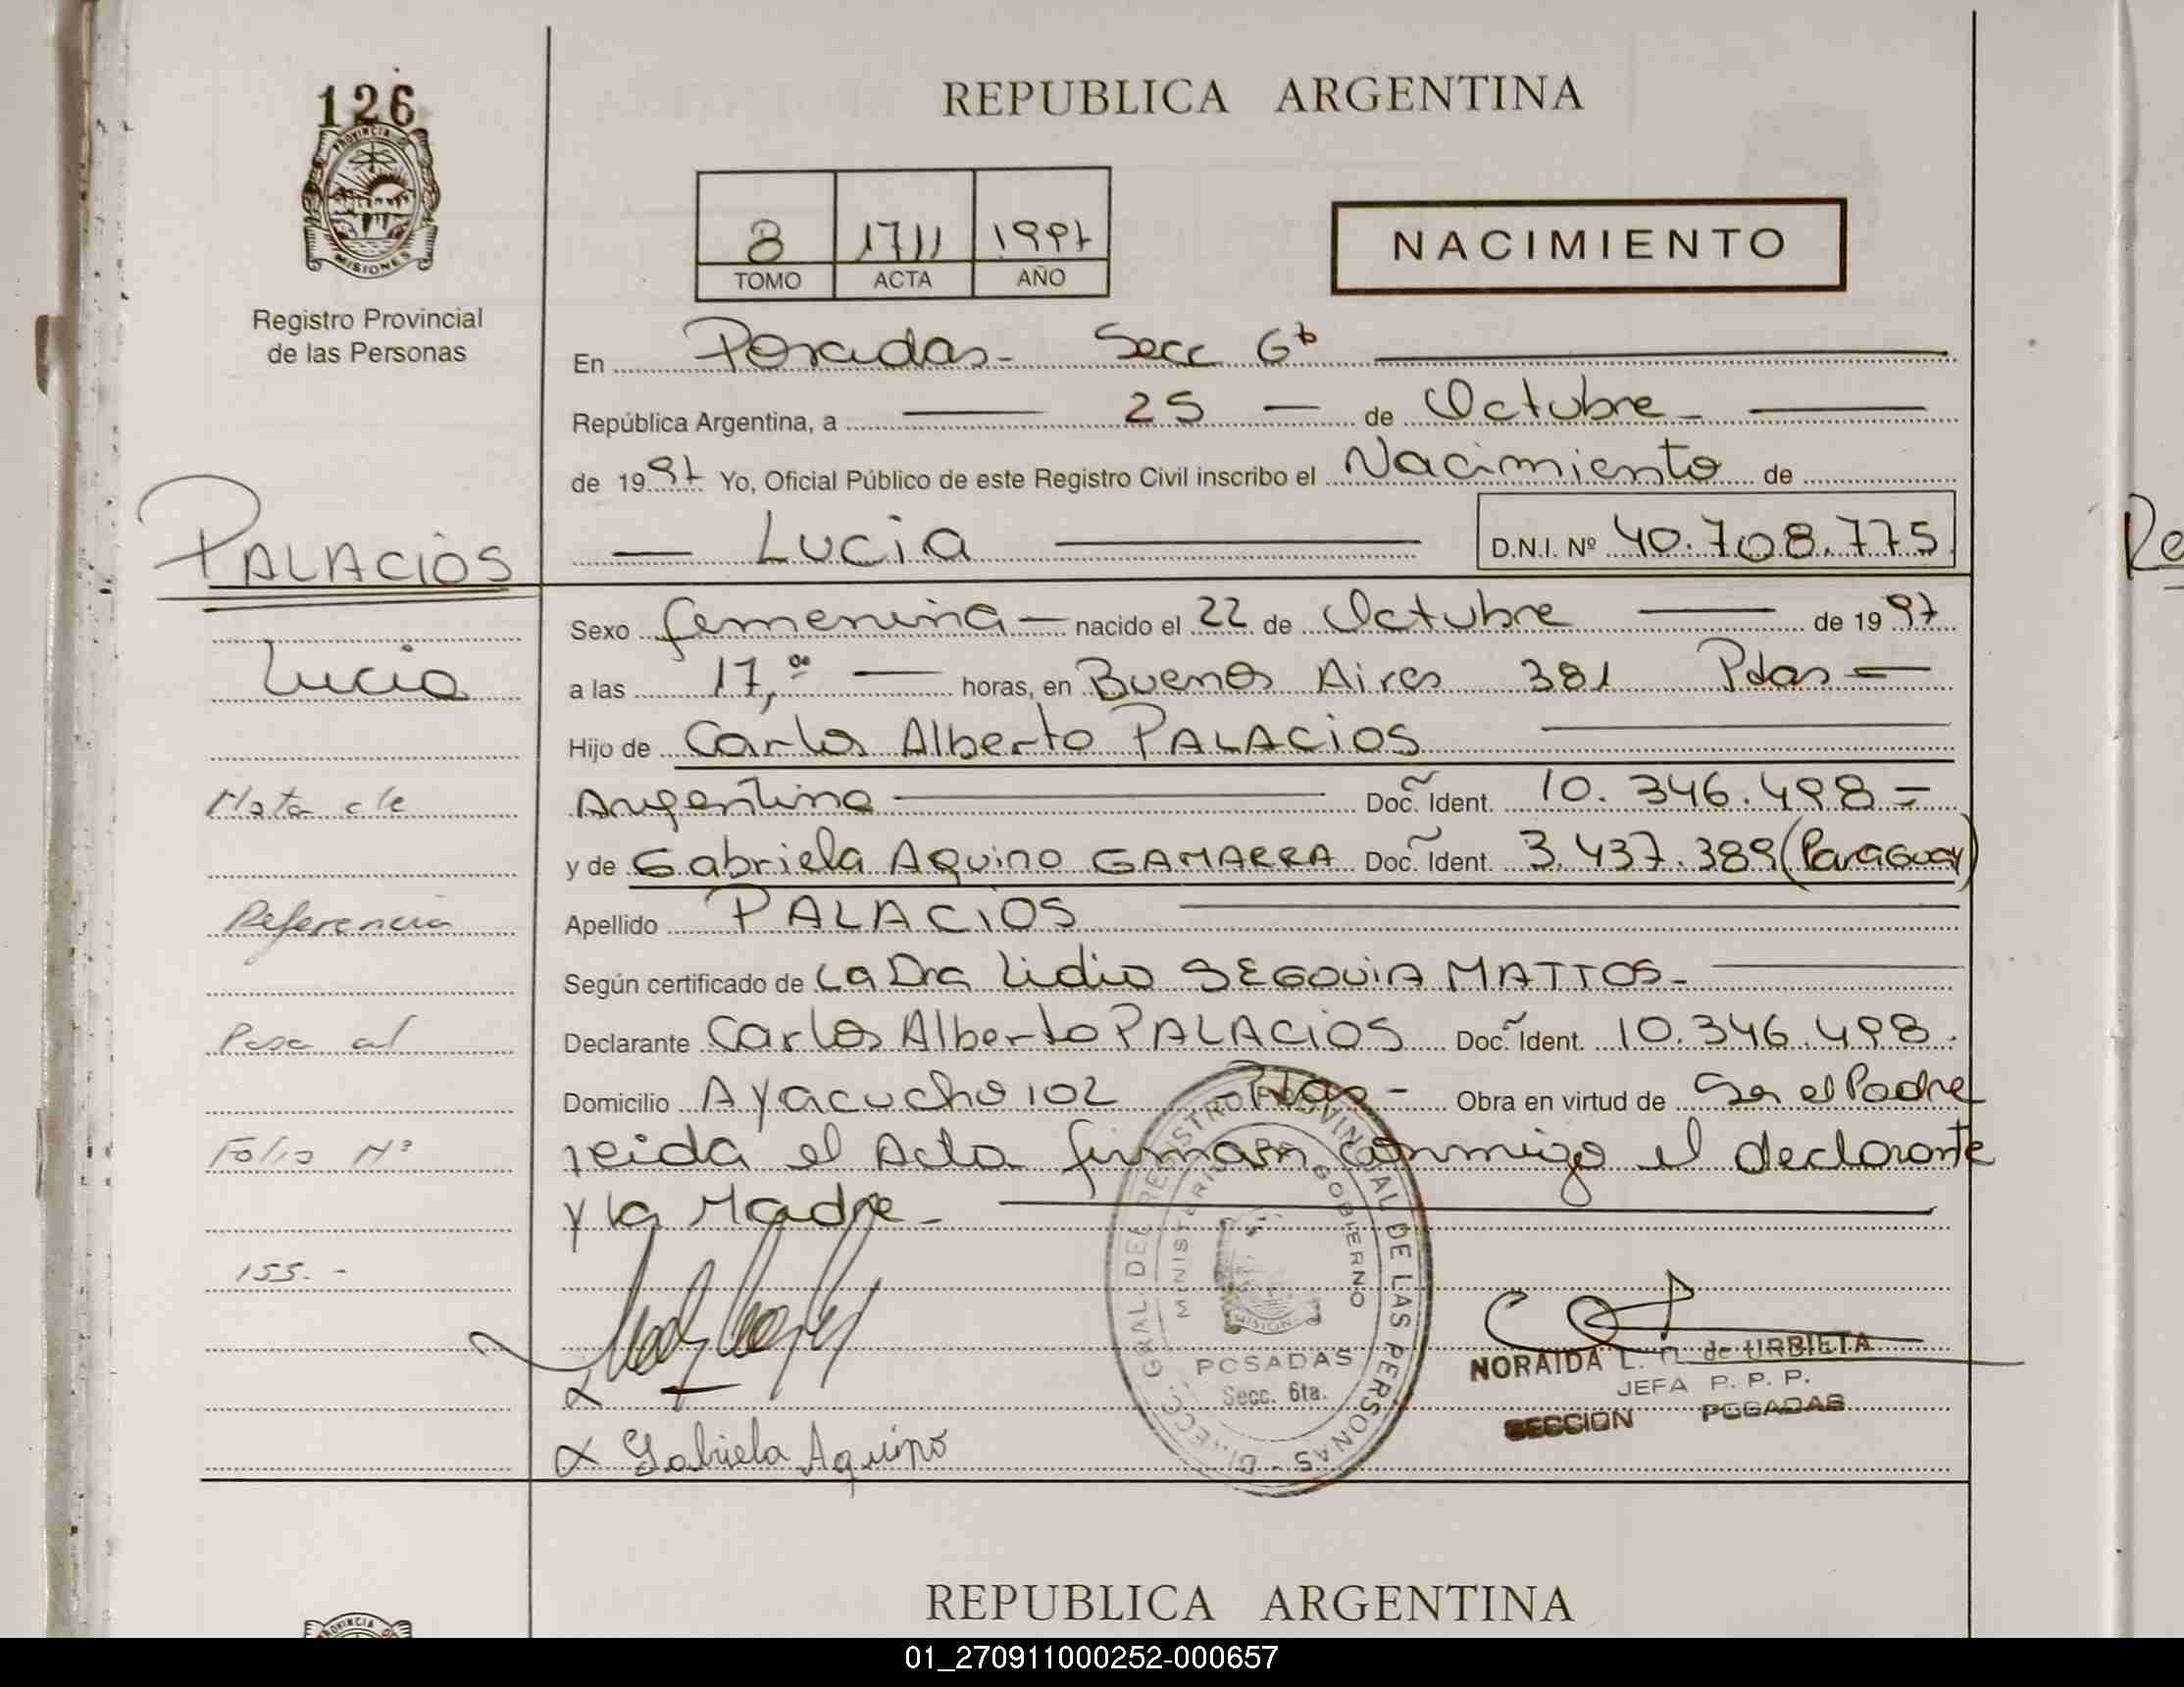 126
PROVINCIA DE
MISIONES
Registro Provincial
de las Personas
REPUBLICA ARGENTINA
8 1711 1997
TOMO ACTA AÑO
NACIMIENTO
En Posadas- Secc 6ta
República Argentina, a 25 — de Octubre -
de 1997 Yo, Oficial Público de este Registro Civil inscribo el Nacimiento de
Lucia D.N.I. Nº 40.708.775
PALACIOS
Lucia
Nota de
Referencia
Pasa al
Folio Nº
155.-
Sexo femenina — nacido el 22 de Octubre de 1997
a las 17,00 horas, en Buenos Aires 381 Pdas =
Hijo de Carlos Alberto PALACIOS
Argentino Doc. Ident. 10.346.498 =
y de Gabriela Aquino GAMARRA Doc. Ident. 3.437.389 (Paraguay)
Apellido PALACIOS
Según certificado de La Dra Lidia SEGOVIA MATTOS-
Declarante Carlos Alberto PALACIOS Doc. Ident. 10.346.498.
Domicilio Ayacucho 102 - Pdas - Obra en virtud de Ser el Padre
leida el Acta firman conmigo el declarante
y la Madre -
DIRECC. GRAL. DEL REGISTRO PROVINCIAL DE LAS PERSONAS -
MINISTERIO GOBIERNO
MISIONES
POSADAS
Secc. 6ta.
NORAIDA L. de URBIETA
JEFA P. P. P.
SECCION POSADAS
Gabriela Aquino
REPUBLICA ARGENTINA
PROVINCIA DE
Re
01_270911000252-000657